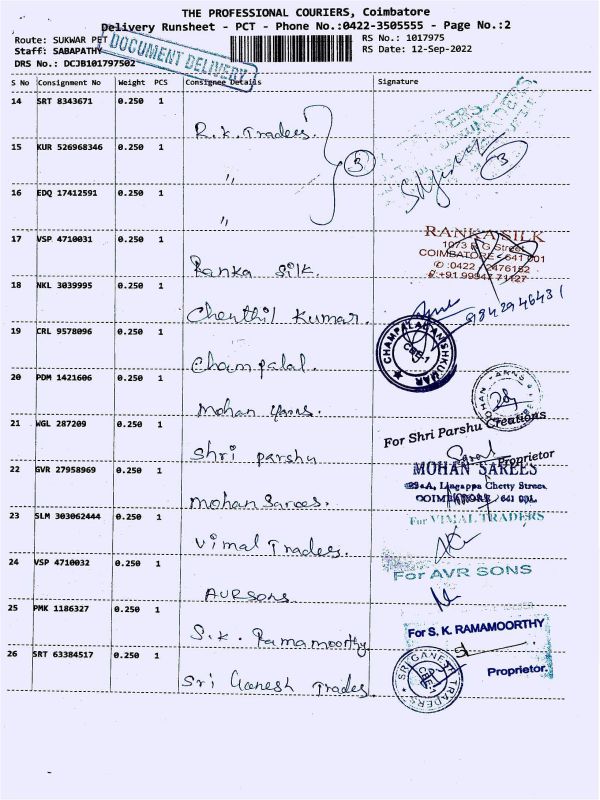 THE PROFESSIONAL COURIERS, Coimbatore
Delivery Runsheet - PCT - Phone No.:0422-3505555 - Page No.:2
Route: SUKWAR PET
RS No.: 1017975
Staff: SABAPATHY
RS Date: 12-Sep-2022
DRS No.: DCJB101797502
DOCUMENT DELIVERY
S No Consignment No Weight PCS Consignee Details Signature
14 SRT 8343671 0.250 1 R.K. Traders.
15 KUR 526968346 0.250 1 "
3
3
16 EDQ 17412591 0.250 1 "
17 VSP 4710031 0.250 1 Ranka Silk.
RANKA SILK
1073 R G Street
COIMBATORE - 641 001
18 NKL 3039995 0.250 1 Chenthil Kumar.
9842946431
19 CRL 9578096 0.250 1 Champalal.
CHAMPALAL
CBE-1
20 PDM 1421606 0.250 1 Mohan Yarns.
MOHAN YARNS
21 WGL 287209 0.250 1 Shri Parshu
For Shri Parshu Creations
Proprietor
22 GVR 27958969 0.250 1 Mohan Sarees.
MOHAN SAREES
Lingappa Chetty Street,
COIMBATORE - 641 001.
23 SLM 303062444 0.250 1 Vimal Traders.
For VIMAL TRADERS
24 VSP 4710032 0.250 1 AVR Sons
For AVR SONS
25 PMK 1186327 0.250 1 S.K. Ramamoorthy
For S. K. RAMAMOORTHY
Proprietor.
26 SRT 63384517 0.250 1 Sri Ganesh Trades.
SRI GANESH TRADERS
CBE-1